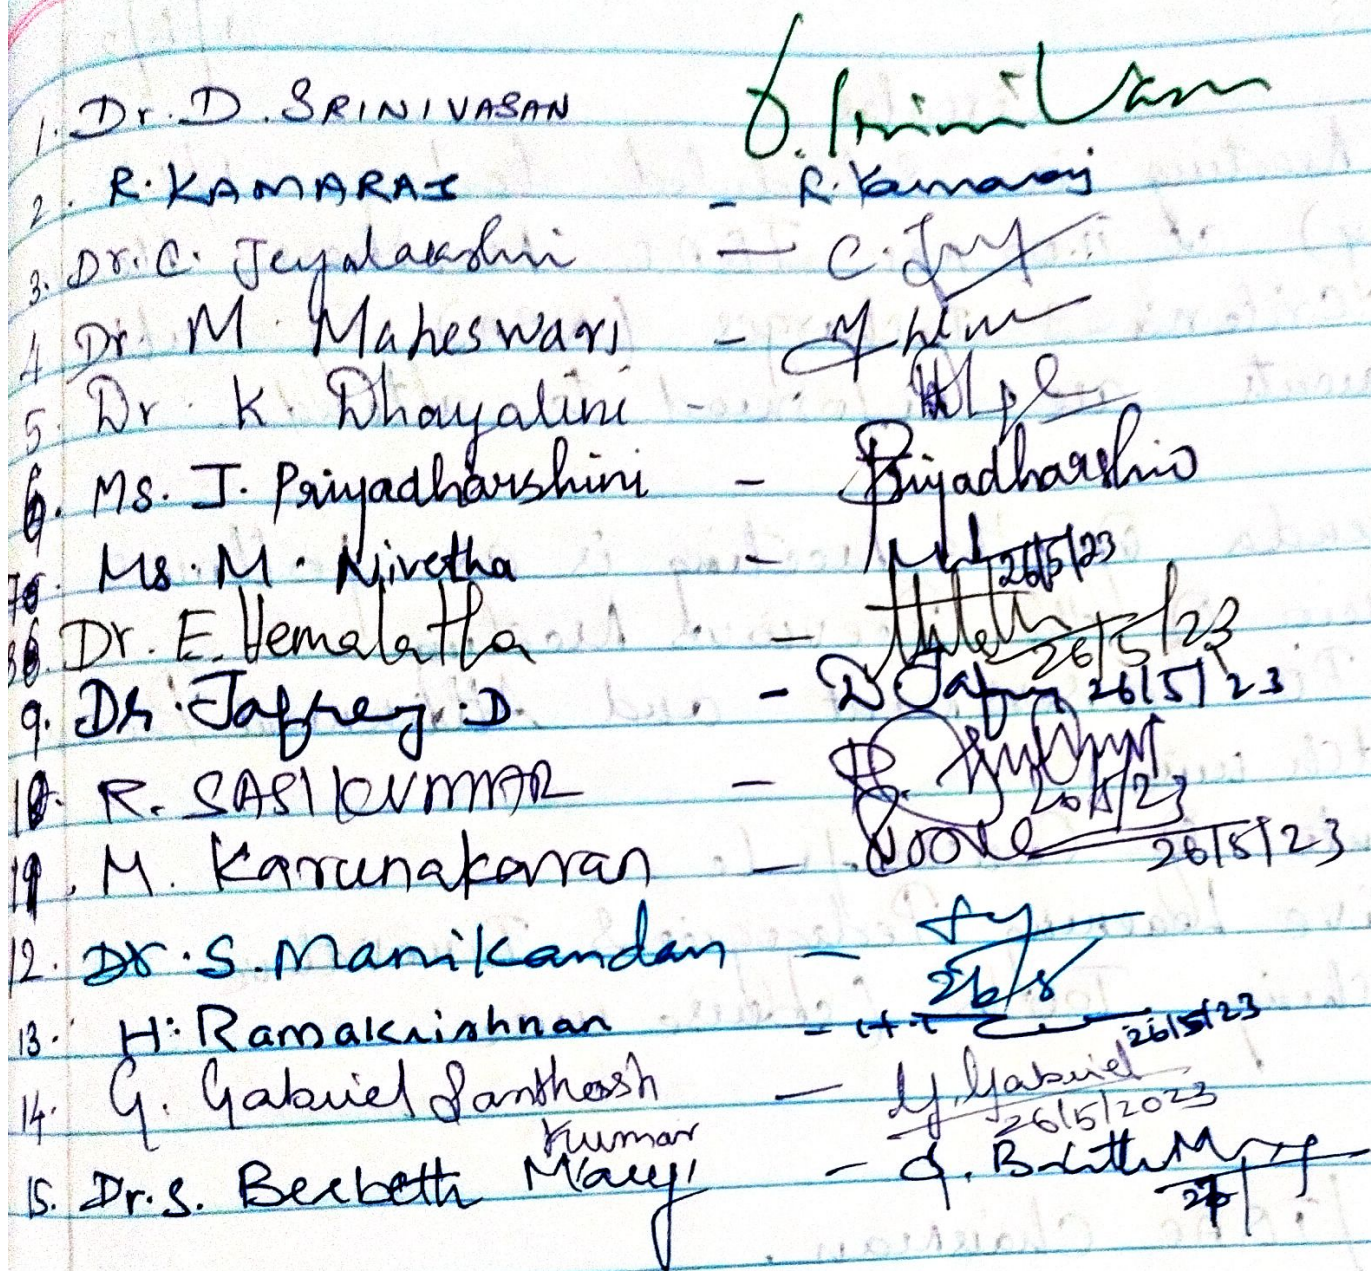 1. Dr. D. SRINIVASAN D. Srinivasan
2. R. KAMARAJ - R. Kamaraj
3. Dr. C. Jeyalakshmi - C. Jey
4 Dr M. Maheswari -
5. Dr. K. Dhayalini -
6. Ms. J. Priyadharshini - Priyadharshini
7. Ms. M. Nivetha - 26/5/23
8. Dr. E. Hemalatha - 26/5/23
9. Dr. Jafrey. D - D Jafrey 26/5/23
10. R. SASIKUMAR - R. 26/5/23
11. M. Karunakaran - 26/5/23
12. Dr. S. Manikandan - 26/5
13. H. Ramakrishnan - H. 26/5/23
14. G. Gabriel Santhosh - G. Gabriel
Kumar 26/5/2023
15. Dr. S. Berbeth Mary - S. Berbeth Mary
26/5